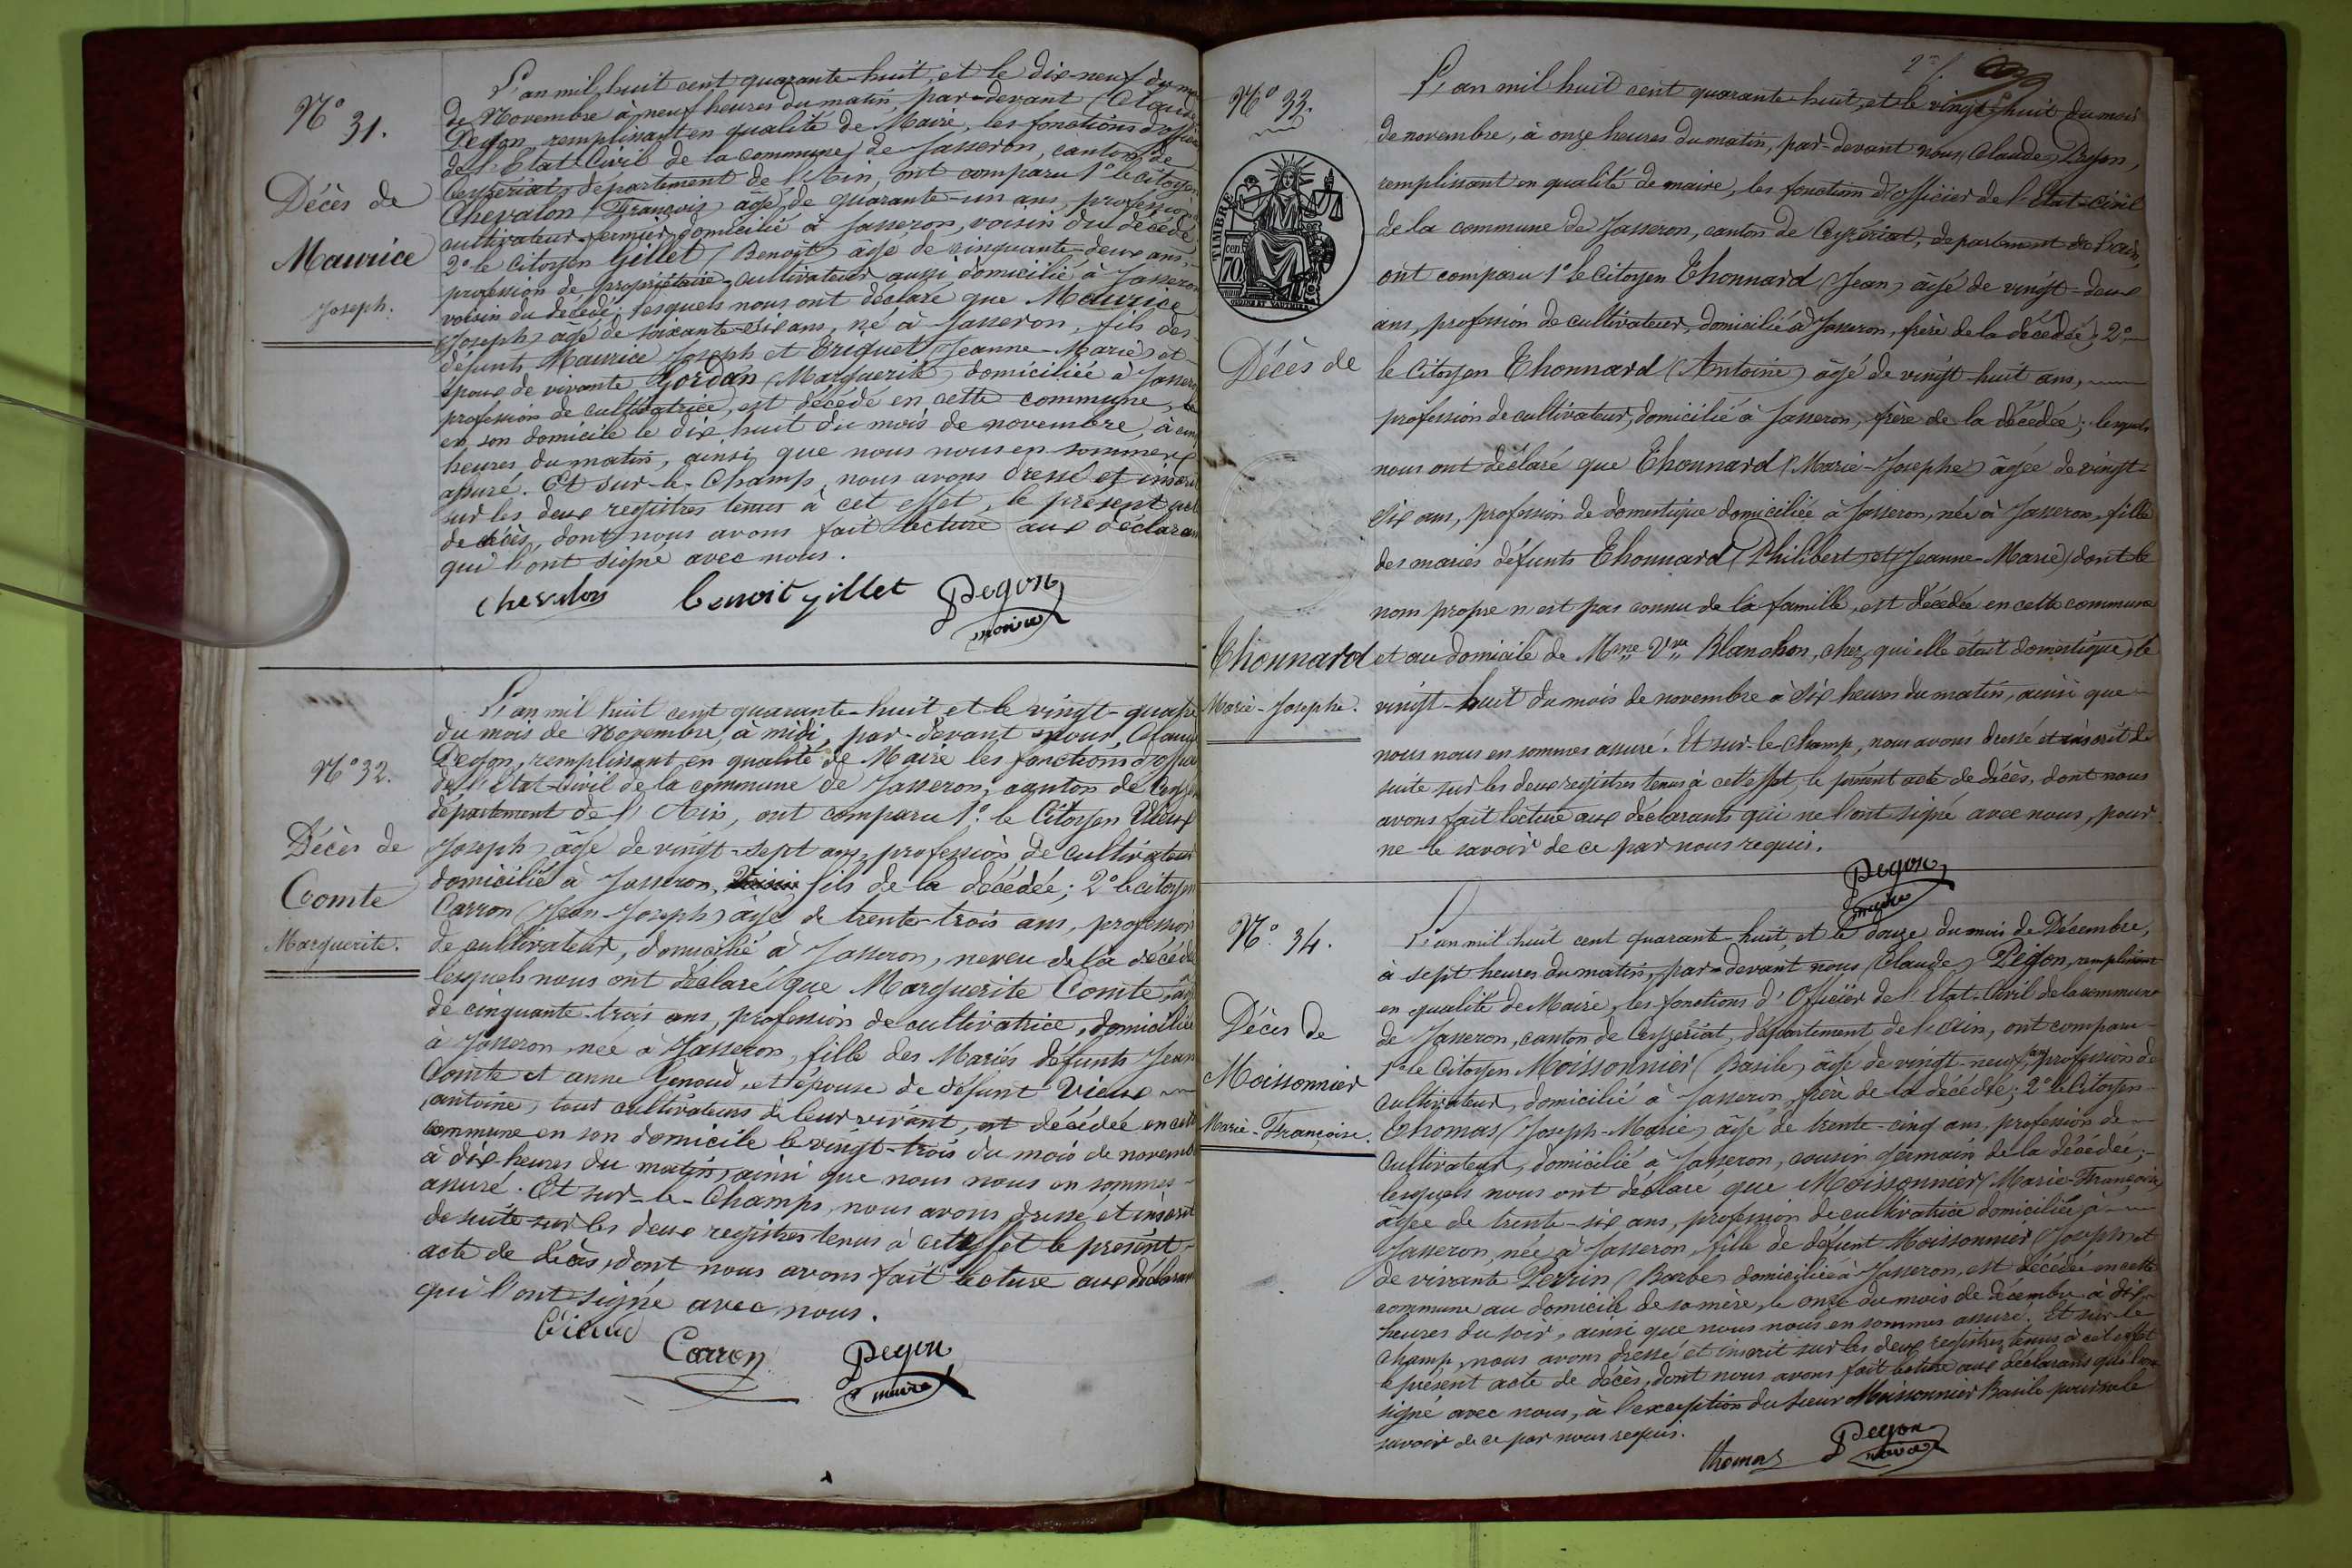 N° 31.
Décès de
Maurice
Joseph.
L'an mil huit cent quarante-huit, et le dix-neuf du
de Novembre à neuf heures du matin, par-devant Claude
Pegon, remplissant en qualité de Maire, les fonctions d'officier
de l'Etat Civil de la commune de Jasseron, canton de
Ceyzériat, département de l'Ain, ont comparu 1° le citoyen
Chevalon (François) âgé de quarante-un ans, profession
cultivateur-fermier, domicilié à Jasseron, voisin du décédé
2° le citoyen Gillet (Benoît) âgé de cinquante-deux ans,
profession de propriétaire-cultivateur aussi domicilié à Jasseron
voisin du décédé; lesquels nous ont déclaré que Maurice
(Joseph) âgé de soixante-six ans, né à Jasseron, fils des
défunts Maurice Joseph et Briquet (Jeanne-Marie) et
époux de vivante Gordan (Marguerite) domiciliée à Jasseron
profession de cultivatrice, est décédé en cette commune,
en son domicile le dix huit du mois de novembre, à cinq
heures du matin, ainsi que nous nous en sommes
assuré. Et sur-le-Champ, nous avons dressé et inscrit
sur les deux registres tenus à cet effet, le présent acte
de décès, dont nous avons fait lecture aux déclarants
qui l'ont signé avec nous.
Chevalon benoit gillet Pegon
maire
N° 32.
Décès de
Comte
Marguerite.
L'an mil huit cent quarante-huit et le vingt-quatre
du mois de Novembre, à midi, par-devant nous, Claude
Pegon, remplissant en qualité de Maire les fonctions d'officier
de l'Etat-Civil de la commune de Jasseron, canton de
département de l'Ain, ont comparu 1° le Citoyen Vieux
Joseph âgé de vingt-sept ans, profession de cultivateur
domicilié à Jasseron, fils de la décédée; 2° le citoyen
Carron (Jean-Joseph) âgé de trente-trois ans, profession
de cultivateur, domicilié à Jasseron, neveu de la décédée
lesquels nous ont déclaré que Marguerite Comte, âgée
de cinquante-trois ans, profession de cultivatrice, domiciliée
à Jasseron, née à Jasseron, fille des Mariés défunts Jean
Comte et anne Genoud, et épouse de défunt Vieux
(antoine) tous cultivateurs de leur vivant, est décédée en cette
commune en son domicile le vingt-trois du mois de novembre
à dix heures du matin, ainsi que nous nous en sommes
assuré. Et sur-le-Champ, nous avons dressé et inscrit
de suite sur les deux registres tenus à cet effet le présent
acte de décès, dont nous avons fait lecture aux déclarants
qui l'ont signé avec nous.
Vieux
Carron Pegon
maire
N° 33.
TIMBRE
70 cen.
Décès de
Thonnard
Marie-Josephe.
L'an mil huit cent quarante-huit, et le vingt-huit du mois
de novembre, à onze heures du matin, par-devant nous, Claude Pegon,
remplissant en qualité de maire, les fonction d'officier de l'Etat-civil
de la commune de Jasseron, canton de Ceyzériat, département de l'ain,
ont comparu 1° le Citoyen Thonnard (Jean) âgé de vingt-deux
ans, profession de cultivateur, domicilié à Jasseron, frère de la décédée; 2°
le Citoyen Thonnard (Antoine) âgé de vingt-huit ans,
profession de cultivateur, domicilié à Jasseron, frère de la décédée; lesquels
nous ont déclaré que Thonnard (Marie-Josephe) âgée de vingt-
six ans, profession de domestique domiciliée à Jasseron, née à Jasseron, fille
des mariés défunts Thonnard (Philibert) et (Jeanne-Marie) dont le
nom propre n'est pas connu de la famille, est décédée en cette commune
et au domicile de Mme Vve Blanchon, chez qui elle était domestique, le
vingt-huit du mois de novembre à six heures du matin, ainsi que
nous nous en sommes assuré. Et sur-le-Champ, nous avons dressé et inscrit de
suite sur les deux registres tenus à cet effet, le présent acte de décès, dont nous
avons fait lecture aux déclarants qui ne l'ont signé avec nous, pour
ne le savoir de ce par nous requis.
Pegon
maire
N° 34.
Décès de
Moissonnier
Marie-Françoise.
L'an mil huit cent quarante-huit, et le douze du mois de Décembre,
à sept heures du matin, par-devant nous Claude Pegon, remplissant
en qualité de Maire, les fonctions d'Officier de l'Etat-Civil de la commune
de Jasseron, canton de Ceyzériat, département de l'ain, ont comparu
1° le Citoyen Moissonnier (Basile) âgé de vingt-neuf ans, profession de
cultivateur, domicilié à Jasseron, frère de la décédée; 2° le Citoyen
Thomas (Joseph-Marie) âgé de trente-cinq ans, profession de
Cultivateur, domicilié à Jasseron, cousin germain de la décédée;
lesquels nous ont déclaré que Moissonnier (Marie-Françoise)
âgée de trente-six ans, profession de cultivatrice domiciliée à
Jasseron, née à Jasseron, fille de défunt Moissonnier (Joseph) et
de vivante Perrin (Barbe) domiciliée à Jasseron, est décédée en cette
commune au domicile de sa mère, le onze du mois de décembre à dix
heures du soir, ainsi que nous nous en sommes assuré. Et sur-le
Champ, nous avons dressé et inscrit sur les deux registres tenus à cet effet
le présent acte de décès, dont nous avons fait lecture aux déclarants qui l'ont
signé avec nous, à l'exception du sieur Moissonnier Basile pour ne le
savoir de ce par nous requis.
thomas Pegon
maire